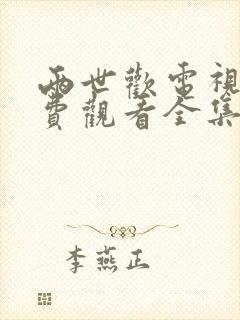 兩世歡電視
費觀看全集
李燕正